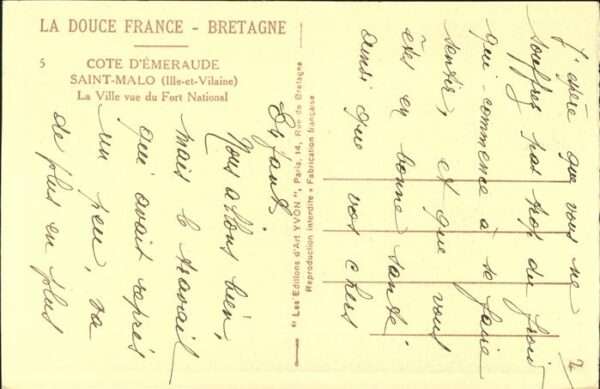 LA DOUCE FRANCE - BRETAGNE
5 COTE D'ÉMERAUDE
SAINT-MALO (Ille-et-Vilaine)
La Ville vue du Fort National
" Les Editions d'Art YVON ", Paris, 14, Rue de Bretagne
Reproduction interdite • Fabrication française
J'espère que vous ne
souffrez pas trop du froid
qui commence à se faire
sentir, et que vous
êtes en bonne santé
ainsi que vos chers
Enfants
Nous allons bien,
mais le travail
qui avait repris
un peu, va
de plus en plus